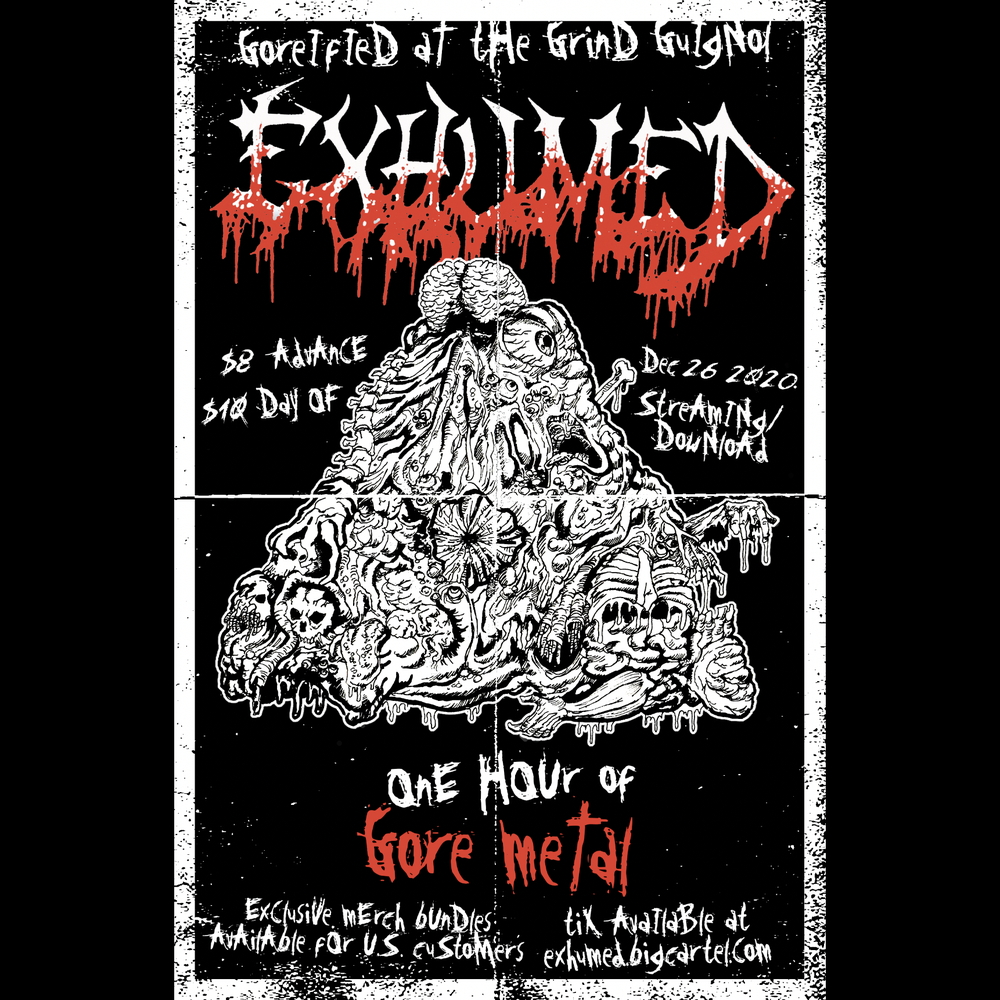 Goreified at the Grind Guignol
EXHUMED
$8 Advance
$10 Day Of
Dec 26 2020
Streaming/
Download
One Hour of
Gore metal
Exclusive merch bundles
Available for U.S. customers
tix Available at
exhumed.bigcartel.com